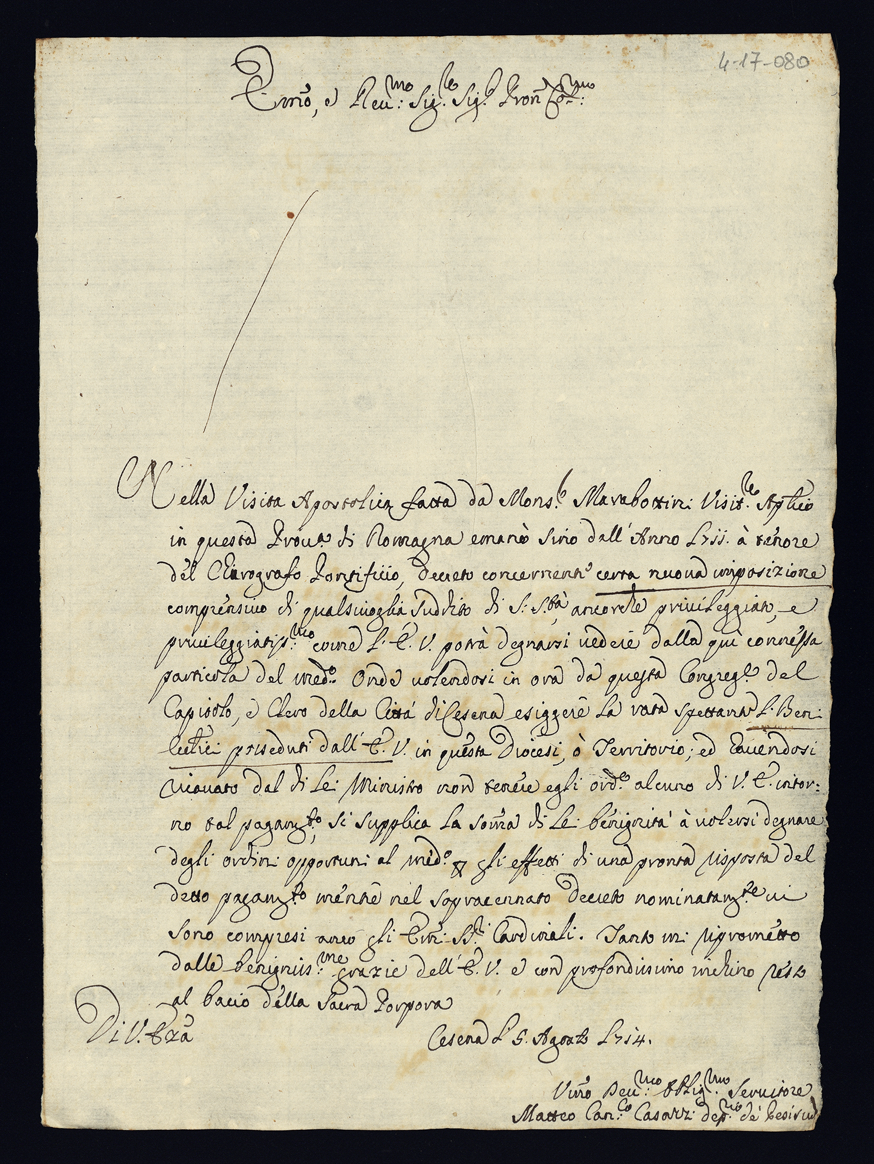 4-17-080
Emo, e Reu:mo Sig:re Sig:r Pron Col:mo
Nella Visita Apostolica fatta da Mons:r Marabottini Visit:re Aplico
in questa Prouа di Romagna emanò sino dall'Anno 1711. à tenore
del Chirografo Pontificio, Decreto concernente certa nuova imposizione
comprensiuo di qualsiuoglia suddito di S: Stà, ancorche priuileggiato, e
priuileggiatiss:mo come l'E. V. potrà degnarsi uedere dalla quì connessa
particola del med:o Onde uolendosi in ora da questa Congreg:e del
Capitolo, e Clero della Città di Cesena esiggere la rata spettante l: Beni
posseduti dall'E. V. in questa Diocesi, ò Territorio; ed hauendosi
ricauato dal di Lei Ministro non tenere egli ord:e alcuno di V. E. intor:
no tal pagam:to, si supplica la somа di Lei benignità à uolersi degnare
degli ordini opportuni al med:o gli effetti di una pronta risposta del
detto pagam:to mentre nel sopracennato Decreto nominatam:te ui
sono compresi anco gli Emi: SS:ri Cardinali. Tanto mi riprometto
dalle benigniss:me grazie dell'E. V. e con profondissimo inchino resto
al bacio della Sacra Porpora
Di V. Eza
Cesena l 5. Agosto 1714.
Vmo Deu:mo Obblig:mo Seruitore
Matteo Can:co Casari dep:to de